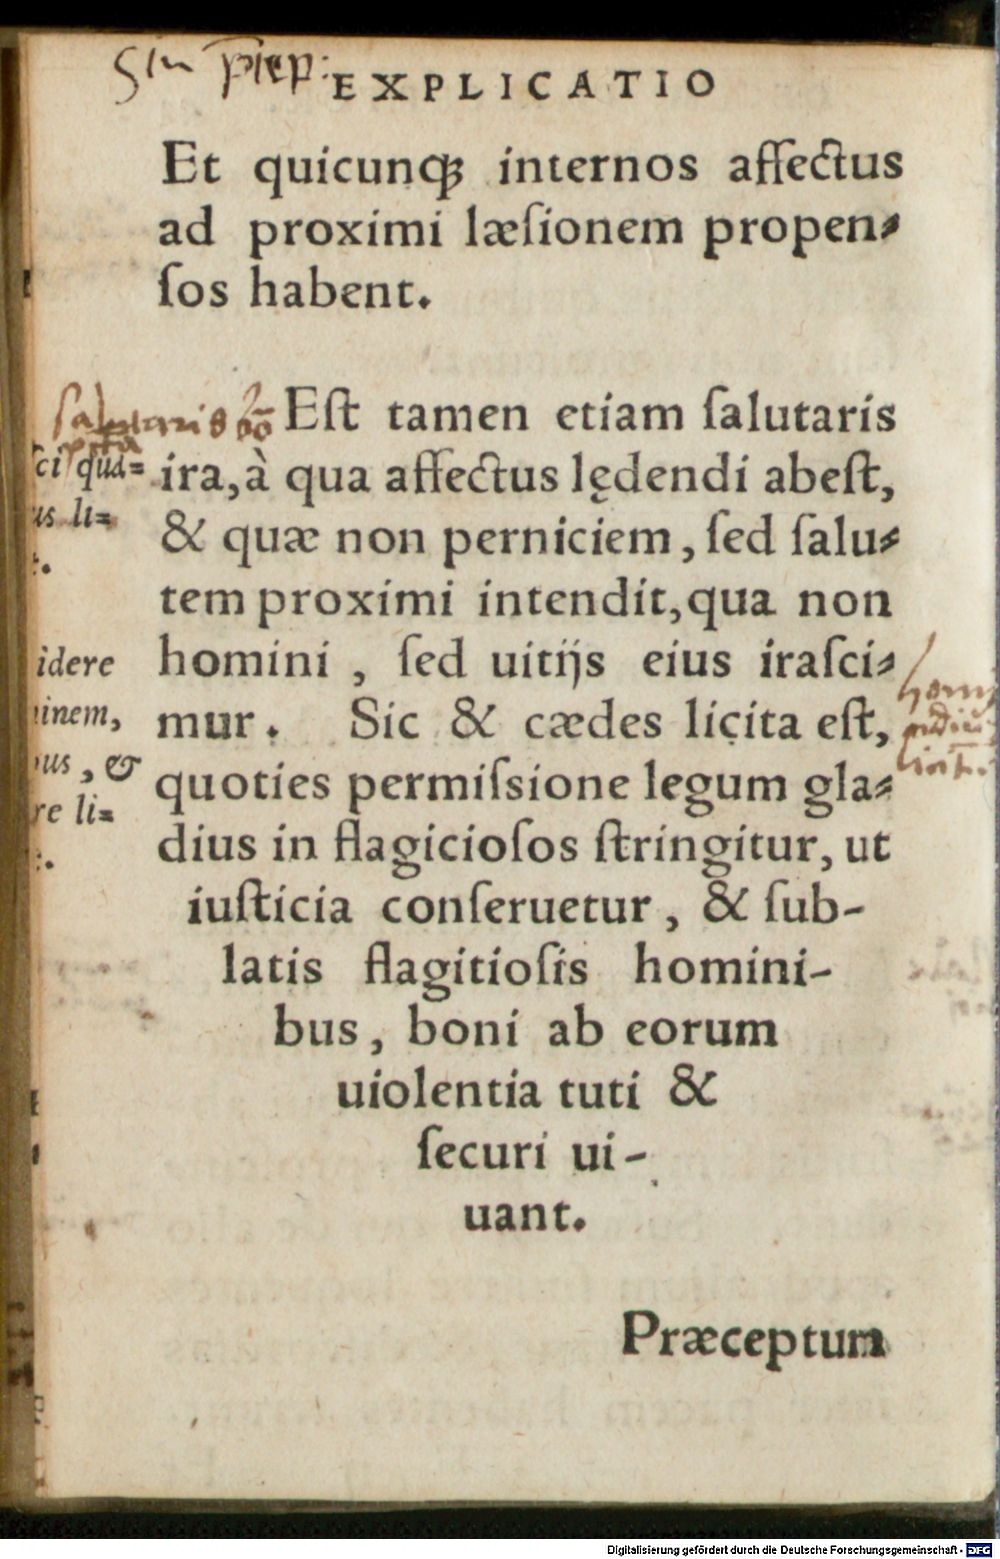 EXPLICATIO
Et quicunqꝫ internos affectus
ad proximi læſionem propen⸗
ſos habent.
Eſt tamen etiam ſalutaris
ira, à qua affectus lędendi abeſt,
& quæ non perniciem, ſed ſalu⸗
tem proximi intendit, qua non
homini, ſed uitijs eius iraſci⸗
mur. Sic & cædes licita eſt,
quoties permiſsione legum gla⸗
dius in flagicioſos ſtringitur, ut
iuſticia conſeruetur, & ſub-
latis flagitioſis homini-
bus, boni ab eorum
uiolentia tuti &
ſecuri ui-
uant.
Præceptum
us li⸗
idere
inem,
us, &
re li⸗
Digitalisierung gefördert durch die Deutsche Forschungsgemeinschaft - DFG